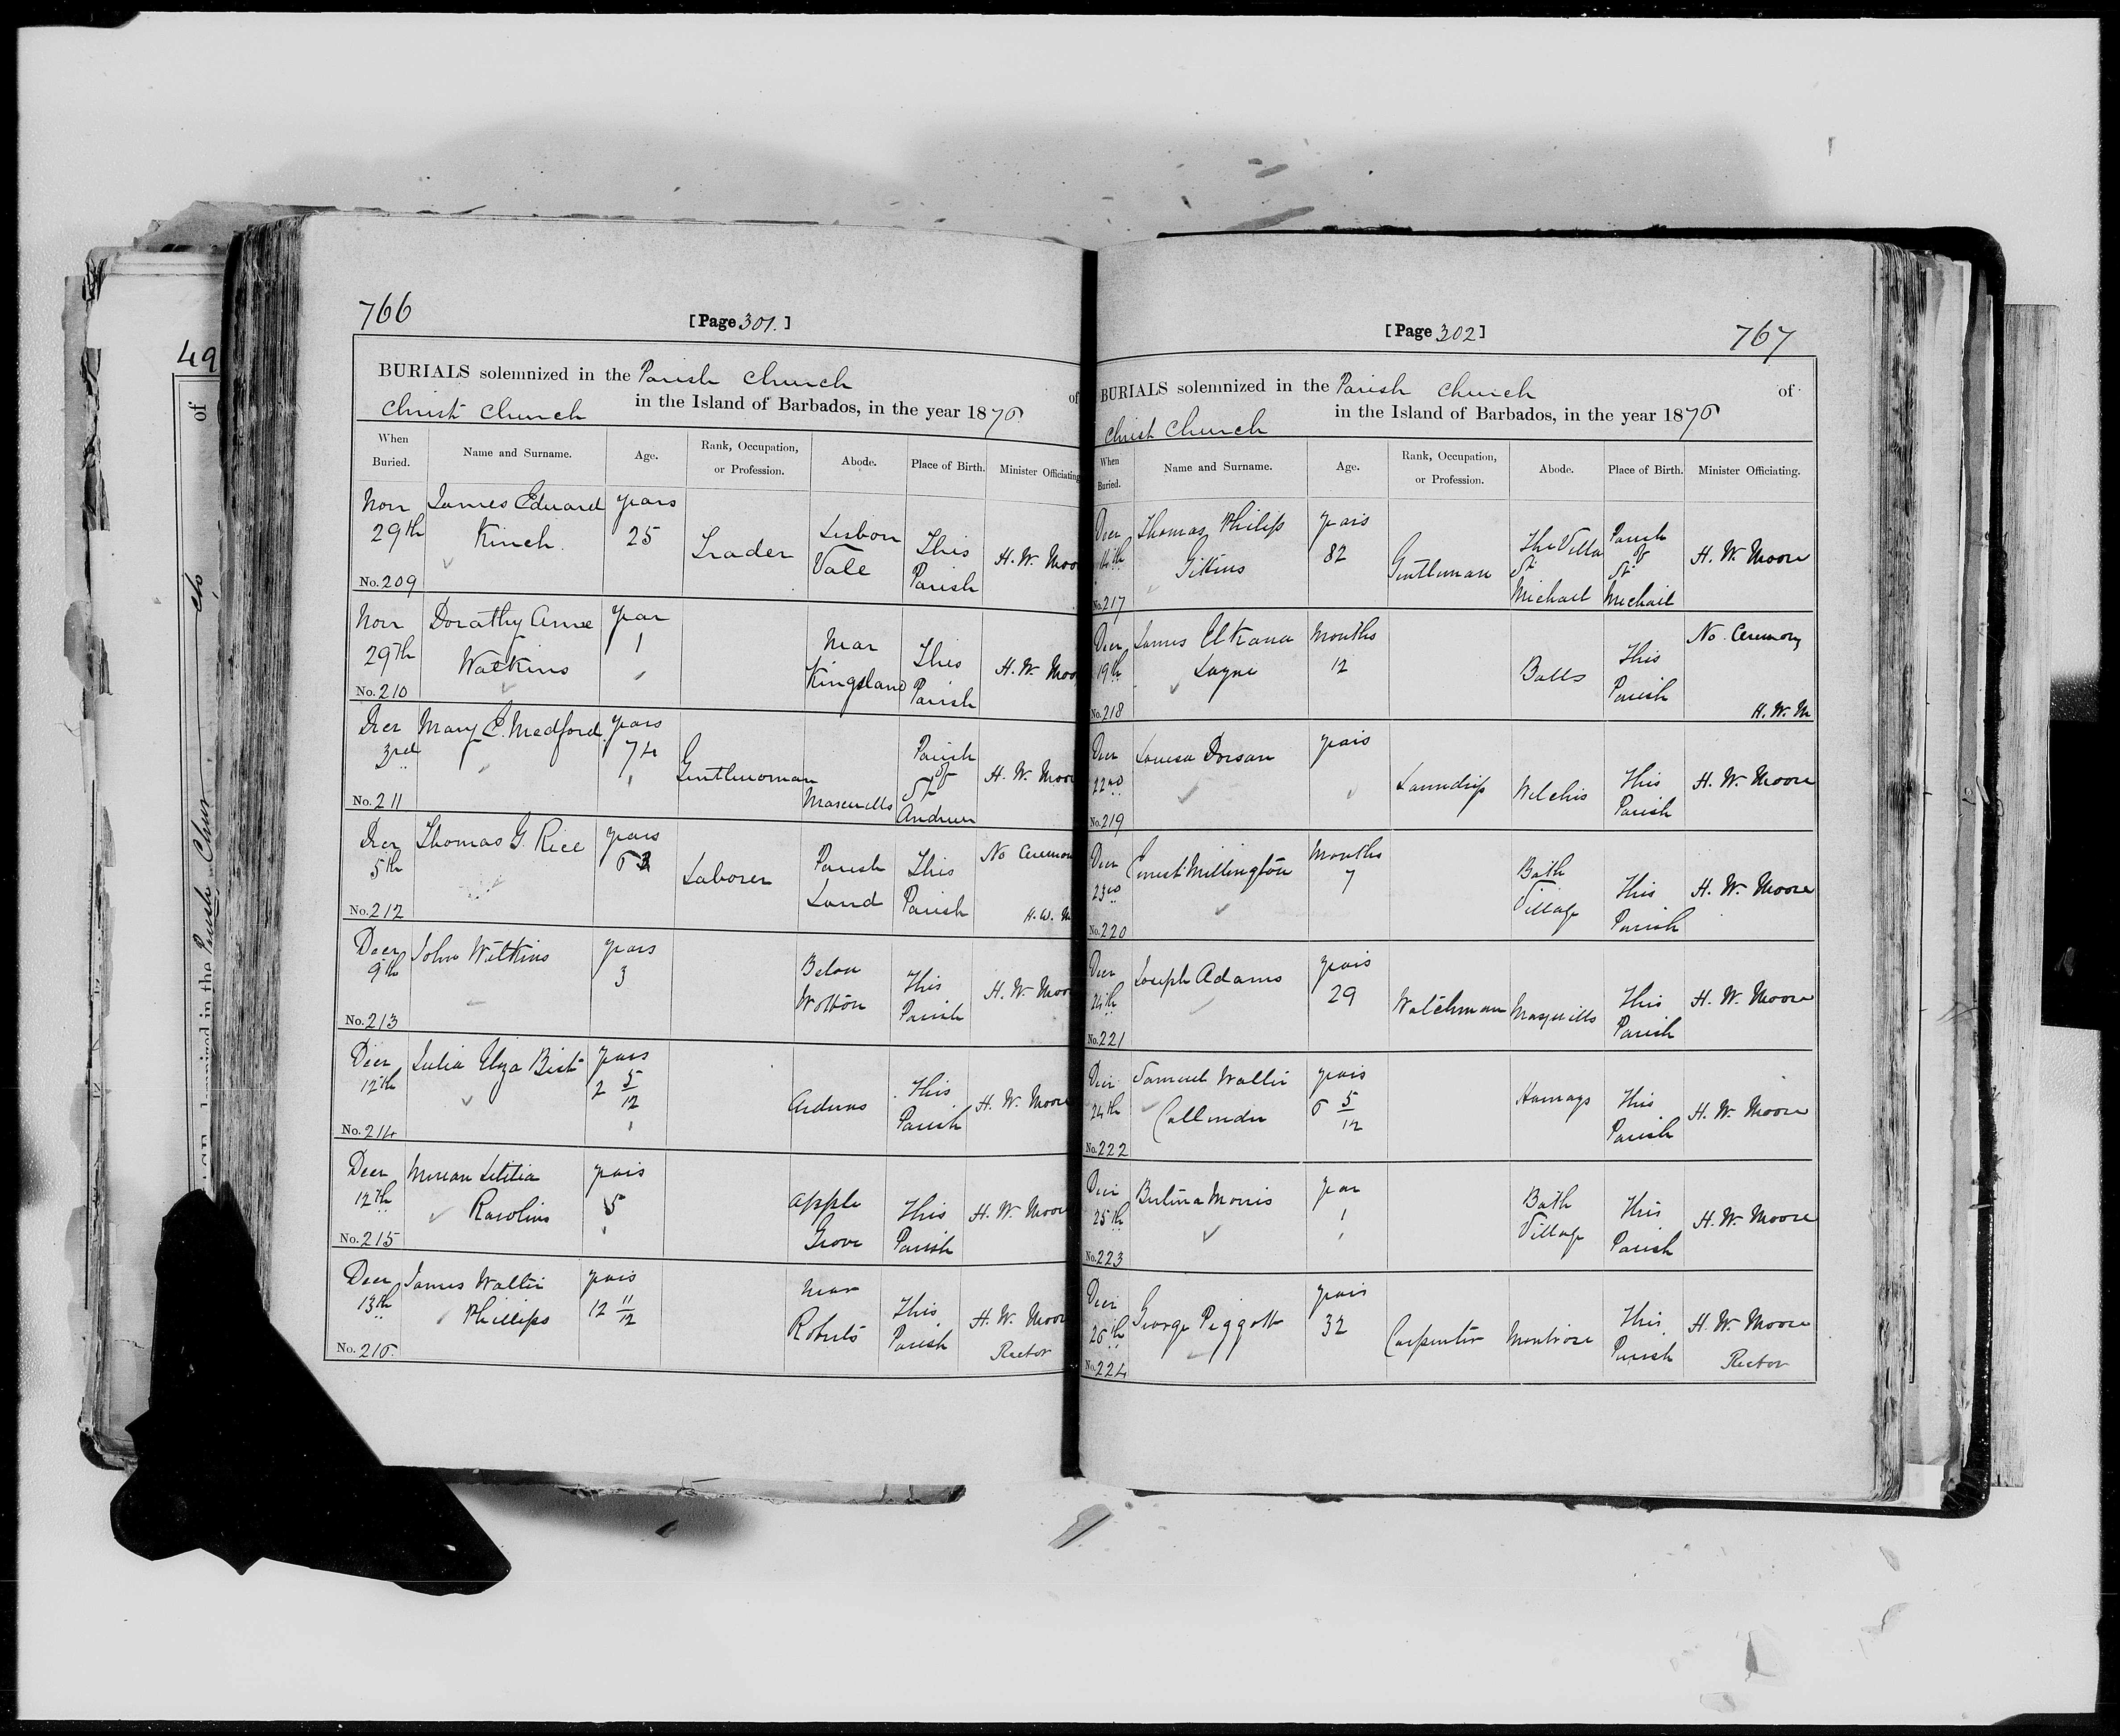 766
[Page 301.]
BURIALS solemnized in the Parish Church of
Christ Church in the Island of Barbados, in the year 1876
When Buried. Name and Surname. Age. Rank, Occupation, or Profession. Abode. Place of Birth. Minister Officiating
Novr 29th James Edward Kinch years 25 Trader Lisbon Vale This Parish H. W. Moo
No. 209
Novr 29th Dorathy Anne Watkins year 1 Near Kingsland This Parish H. W. Moo
No. 210
Decr 3rd Mary E. Medford years 74 Gentlewoman Maxwells Parish of St Andrew H. W. Moor
No. 211
Decr 5th Thomas G. Rice years 63 Laborer Parish Land This Parish No Ceremon
H. W. M
No. 212
Decr 9th John Wilkins years 3 Below Wotton This Parish H. W. Moor
No. 213
Decr 12th Julia Eliza Best years 2 5/12 This Parish H. W. Moore
No. 214
Decr 12th Letitia years 5 Apple Grove This Parish H. W. Moore
No. 215
Decr 13th James Walter Phillips years 12 11/12 Near Roberts This Parish H. W. Moor
Rector
No. 216.
[Page 302]
767
BURIALS solemnized in the Parish Church of
Christ Church in the Island of Barbados, in the year 1876
When Buried. Name and Surname. Age. Rank, Occupation, or Profession. Abode. Place of Birth. Minister Officiating.
Decr Thomas Philip Gittins years 82 Gentleman The Villa St Michael Parish of St Michael H. W. Moore
No. 217
Decr 19th James Elkana Layne Months 12 Balls This Parish No Ceremony
H. W. M
No. 218
Decr 22nd Louisa Dorsan years Laundress Welches This Parish H. W. Moore
No. 219
Decr 23rd Ernest Millington Months 7 Bath Village This Parish H. W. Moore
No. 220
Decr 24th Joseph Adams years 29 Watchman Maxwells This Parish H. W. Moore
No. 221
Decr 24th Samuel Walter Callender years 6 5/12 Hannays This Parish H. W. Moore
No. 222
Decr 25th Morris year 1 Bath Village This Parish H. W. Moore
No. 223
Decr 26th George Piggott years 32 Carpenter Montrose This Parish H. W. Moore
Rector
No. 224
49
of
in the Parish Chur